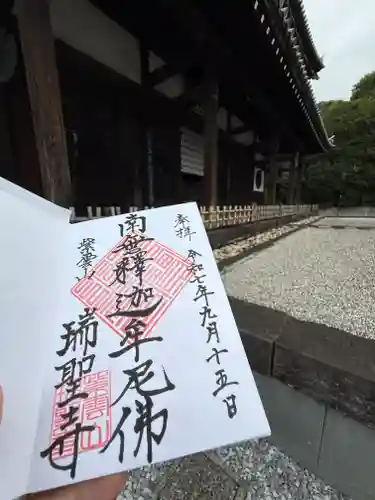 奉拝
令和七年九月十五日
南無釋迦牟尼佛
紫雲山
瑞聖寺